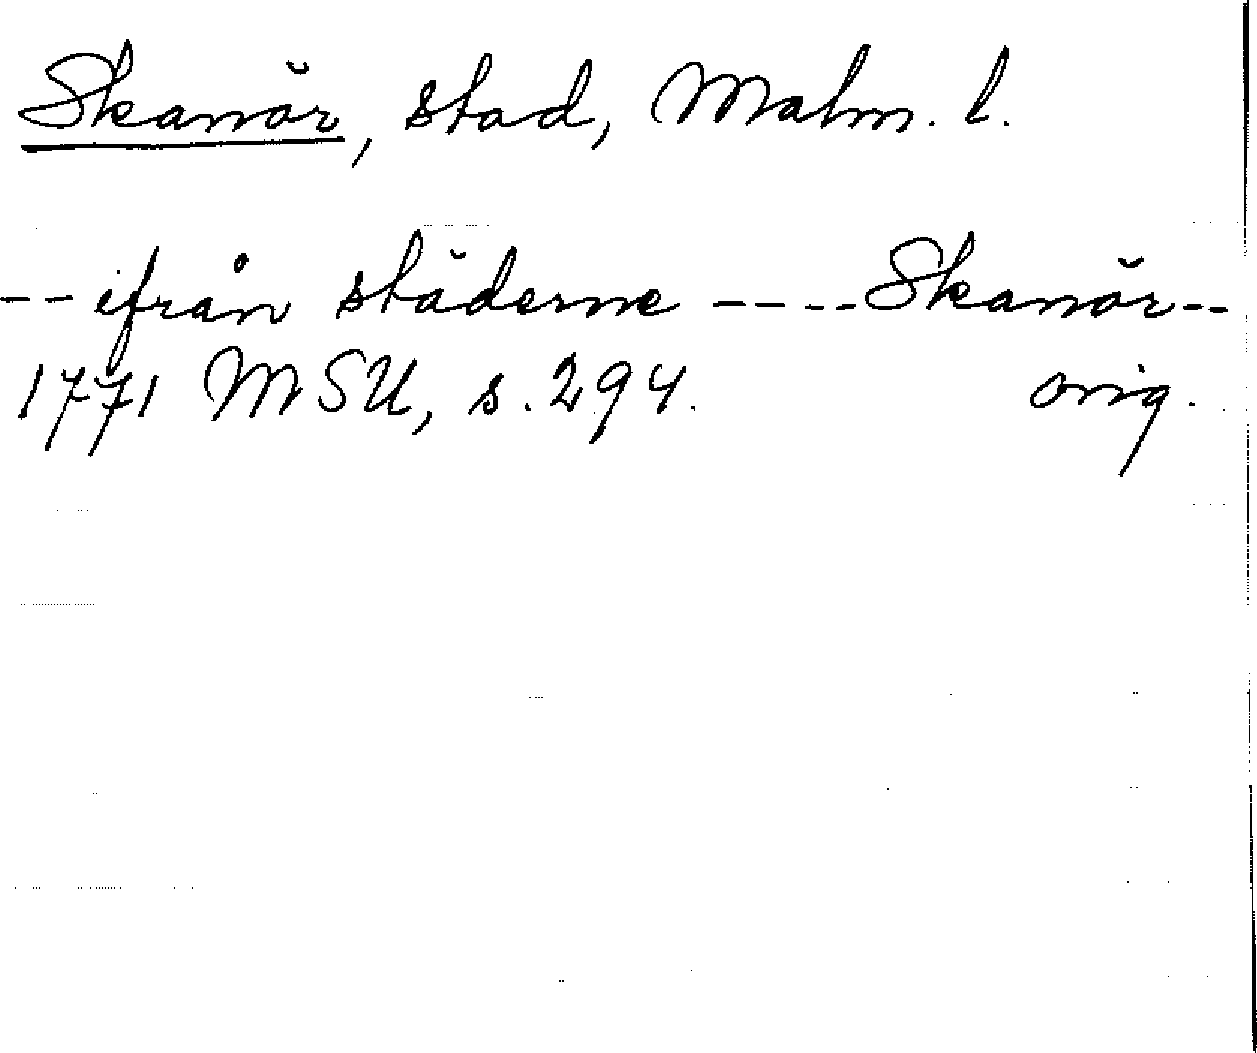 Skanör, stad, Malm. l.
-- ifrån städerne -- -- Skanör --
1771 MSU, s. 294. orig.